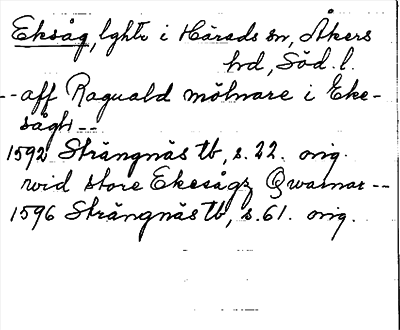 Eksåg, lght i Härads sn, Åkers
hd, Söd. l.
--aff Raguald mölnare i Eke-
sågh --
1592 Strängnäs tb, s. 22. orig.
wid store Ekesågz Qwarnar --
1596 Strängnäs tb, s. 61. orig.